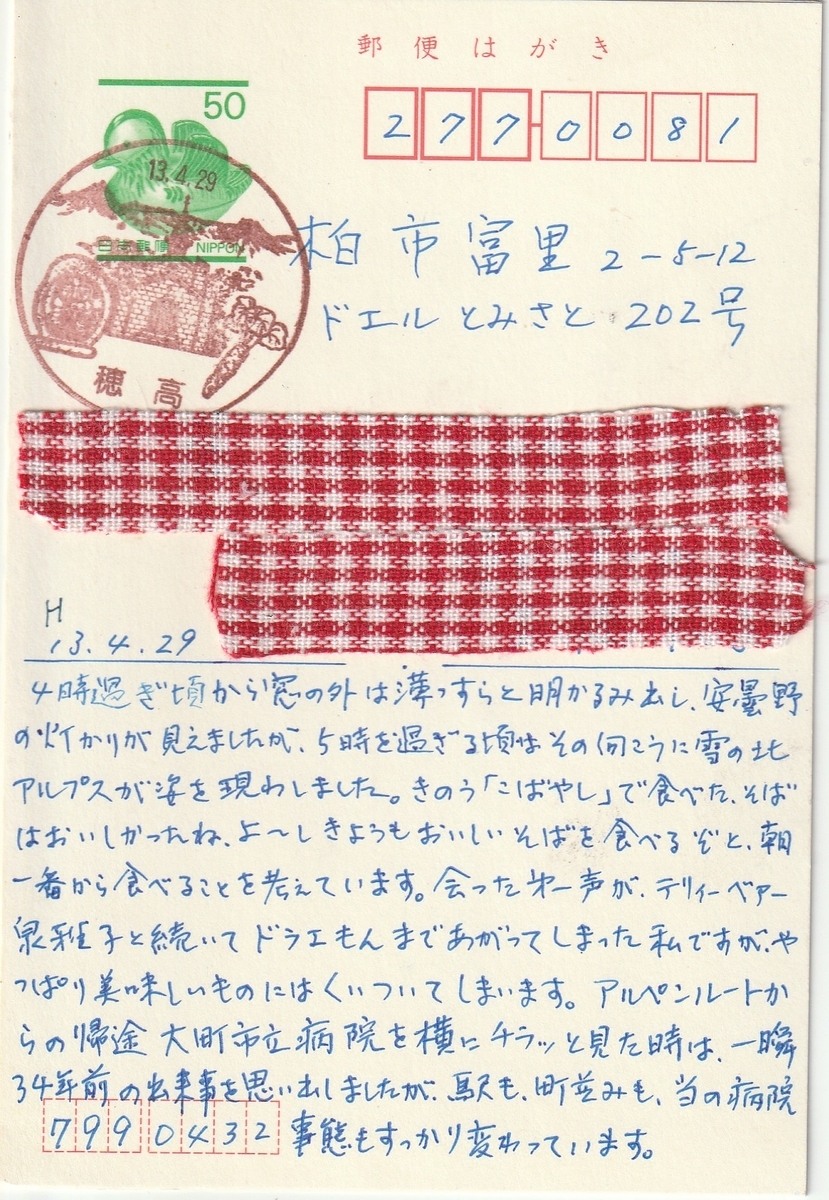 郵便はがき
50
277-0081
13.4.29
日本郵便 NIPPON
穂高
柏市富里 2-5-12
ドエルとみさと 202号
H
13.4.29
4時過ぎ頃から窓の外は薄っすらと明かるみ出し、安曇野
の灯かりが見えましたが、5時を過ぎる頃はその向こうに雪の北
アルプスが姿を現わしました。きのう「こばやし」で食べた、そば
はおいしかったね、よ〜しきょうもおいしいそばを食べるぞと、朝
一番から食べることを考えています。会った第一声が、テリィーベァー
泉雅子と続いてドラエもんまであがってしまった私ですが、や
っぱり美味しいものにはくいついてしまいます。アルペンルートか
らの帰途 大町市立病院を横にチラッと見た時は、一瞬
34年前の出来事を思い出しましたが、駅も、町並みも、当の病院
事態もすっかり変わっています。
7990432